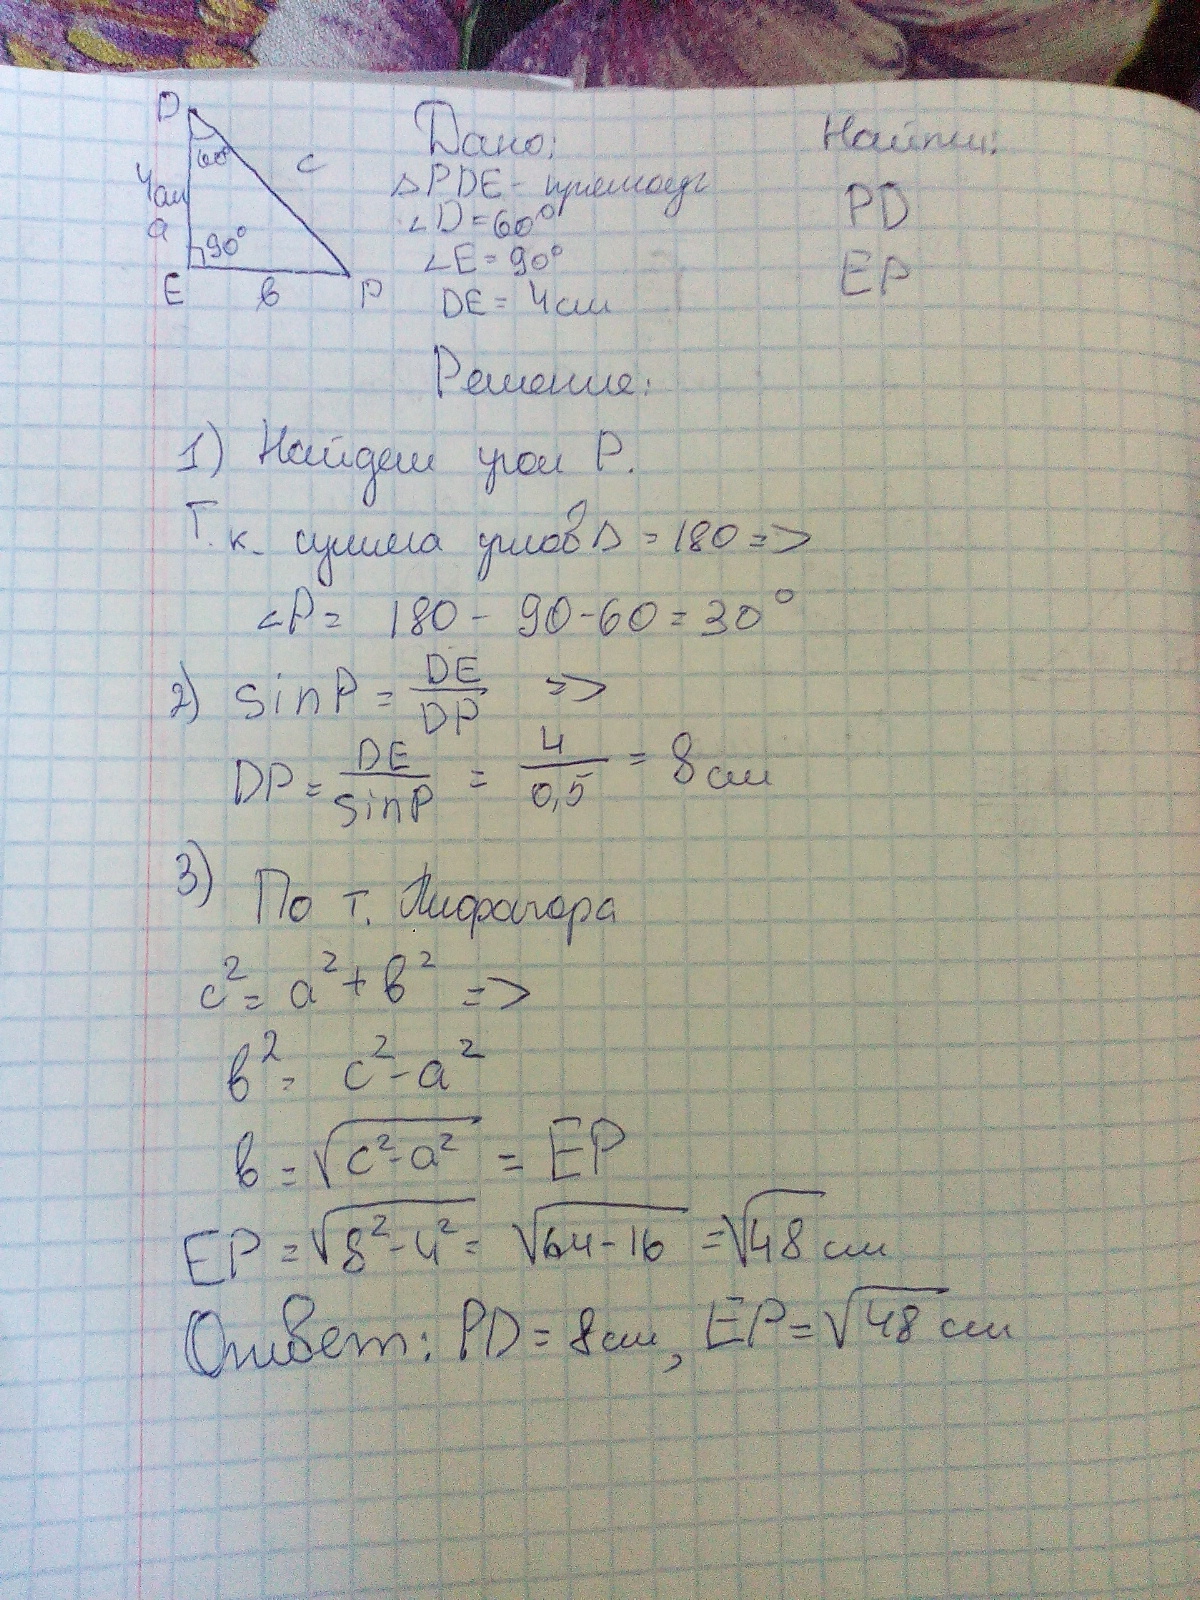 D
60°
c
4см
a
90°
E
в
P
Дано:
△PDE - прямоуг
∠D = 60°
∠E = 90°
DE = 4 см
Найти:
PD
EP
Решение:
1) Найдем угол P.
Т.к. сумма углов △ = 180 =>
∠P = 180 - 90 - 60 = 30°
2) sinP = DE/DP =>
DP = DE/sinP = 4/0,5 = 8 см
3) По т. Пифагора
c² = a² + в² =>
в² = c² - a²
в = √(c² - a²) = EP
EP = √(8² - 4²) = √(64 - 16) = √48 см
Ответ: PD = 8 см, EP = √48 см